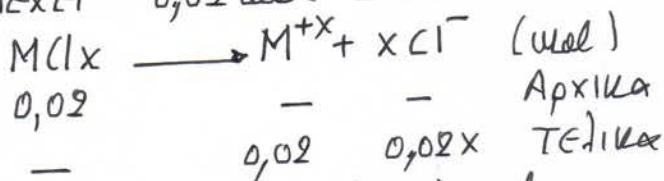 0,02
MClx → M⁺ˣ + xCl⁻ (mol)
0,02 — — Αρχικα
— 0,02 0,02x Τελικα